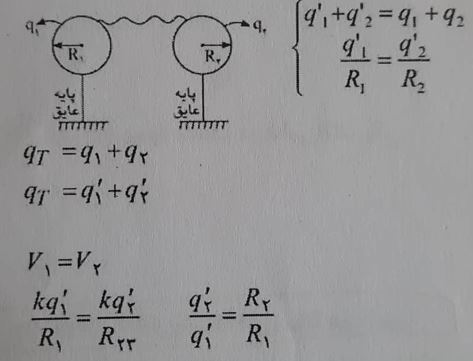 q۱ R۱ R۲ q۲
پایه عایق پایه عایق
q'1+q'2 = q1 + q2
q'1/R1 = q'2/R2
qT = q۱ + q۲
qT = q'۱ + q'۲
V۱ = V۲
kq'۱/R۱ = kq'۲/R۲۳ q'۲/q'۱ = R۲/R۱